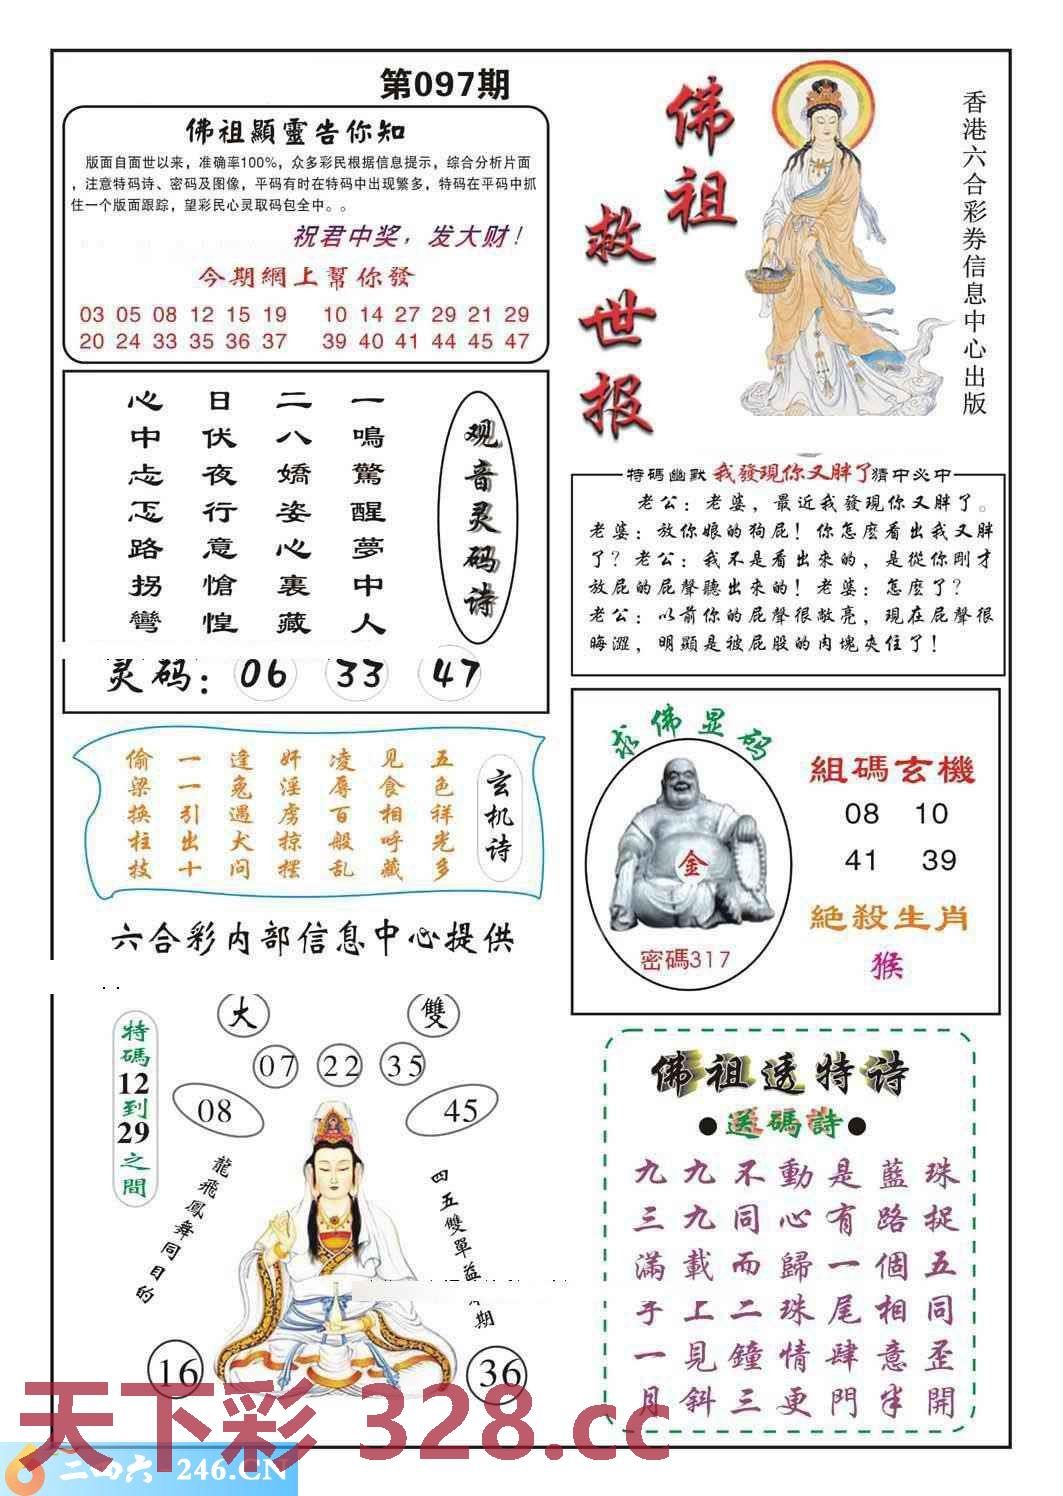 第097期
佛祖顯靈告你知
版面自面世以来，准确率100%，众多彩民根据信息提示，综合分析片面
，注意特码诗、密码及图像，平码有时在特码中出现繁多，特码在平码中抓
住一个版面跟踪，望彩民心灵取码包全中。。
祝君中奖，发大财！
今期網上幫你發
03 05 08 12 15 19 10 14 27 29 21 29
20 24 33 35 36 37 39 40 41 44 45 47
佛祖
救世报
香港六合彩券信息中心出版
观音灵码诗
一鳴驚醒夢中人
二八嬌姿心裏藏
日伏夜行意愴惶
心中忐忑路拐彎
灵码：06 33 47
特碼幽默 我發現你又胖了 猜中必中
老公：老婆，最近我發現你又胖了。
老婆：放你娘的狗屁！你怎麼看出我又胖
了？老公：我不是看出來的，是從你剛才
放屁的屁聲聽出來的！老婆：怎麼了？
老公：以前你的屁聲很敞亮，現在屁聲很
晦澀，明顯是被屁股的肉塊夾住了！
玄机诗
五色祥光多
见食相呼藏
凌辱百般乱
奸淫虏掠摆
逢兔遇犬问
一一引出十
偷梁换柱技
六合彩内部信息中心提供
求佛显码
金
密碼317
組碼玄機
08 10
41 39
絕殺生肖
猴
特碼12到29之間
大 雙
07 22 35
08 45
龍飛鳳舞同目的
四五雙單益 期
16 36
佛祖透特诗
●送碼詩●
珠捉五同歪開
藍路個相意半
是有一尾肆門
動心歸珠情更
不同而二鐘三
九九載上見斜
九三滿乎一月
天下彩 328.cc
二四六 246.CN